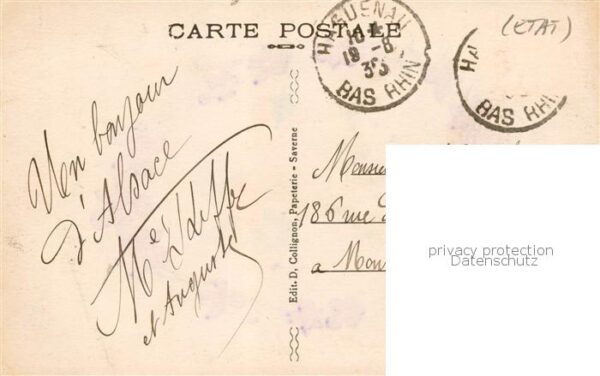 CARTE POSTALE
(ETAT)
HAGUENAU
19-8
35
BAS RHIN
HA
BAS RHIN
Un bonjour
d'Alsace
et Auguste
Edit. D. Collignon, Papeterie - Saverne
Monsieu
186 rue
a Mon
privacy protection
Datenschutz